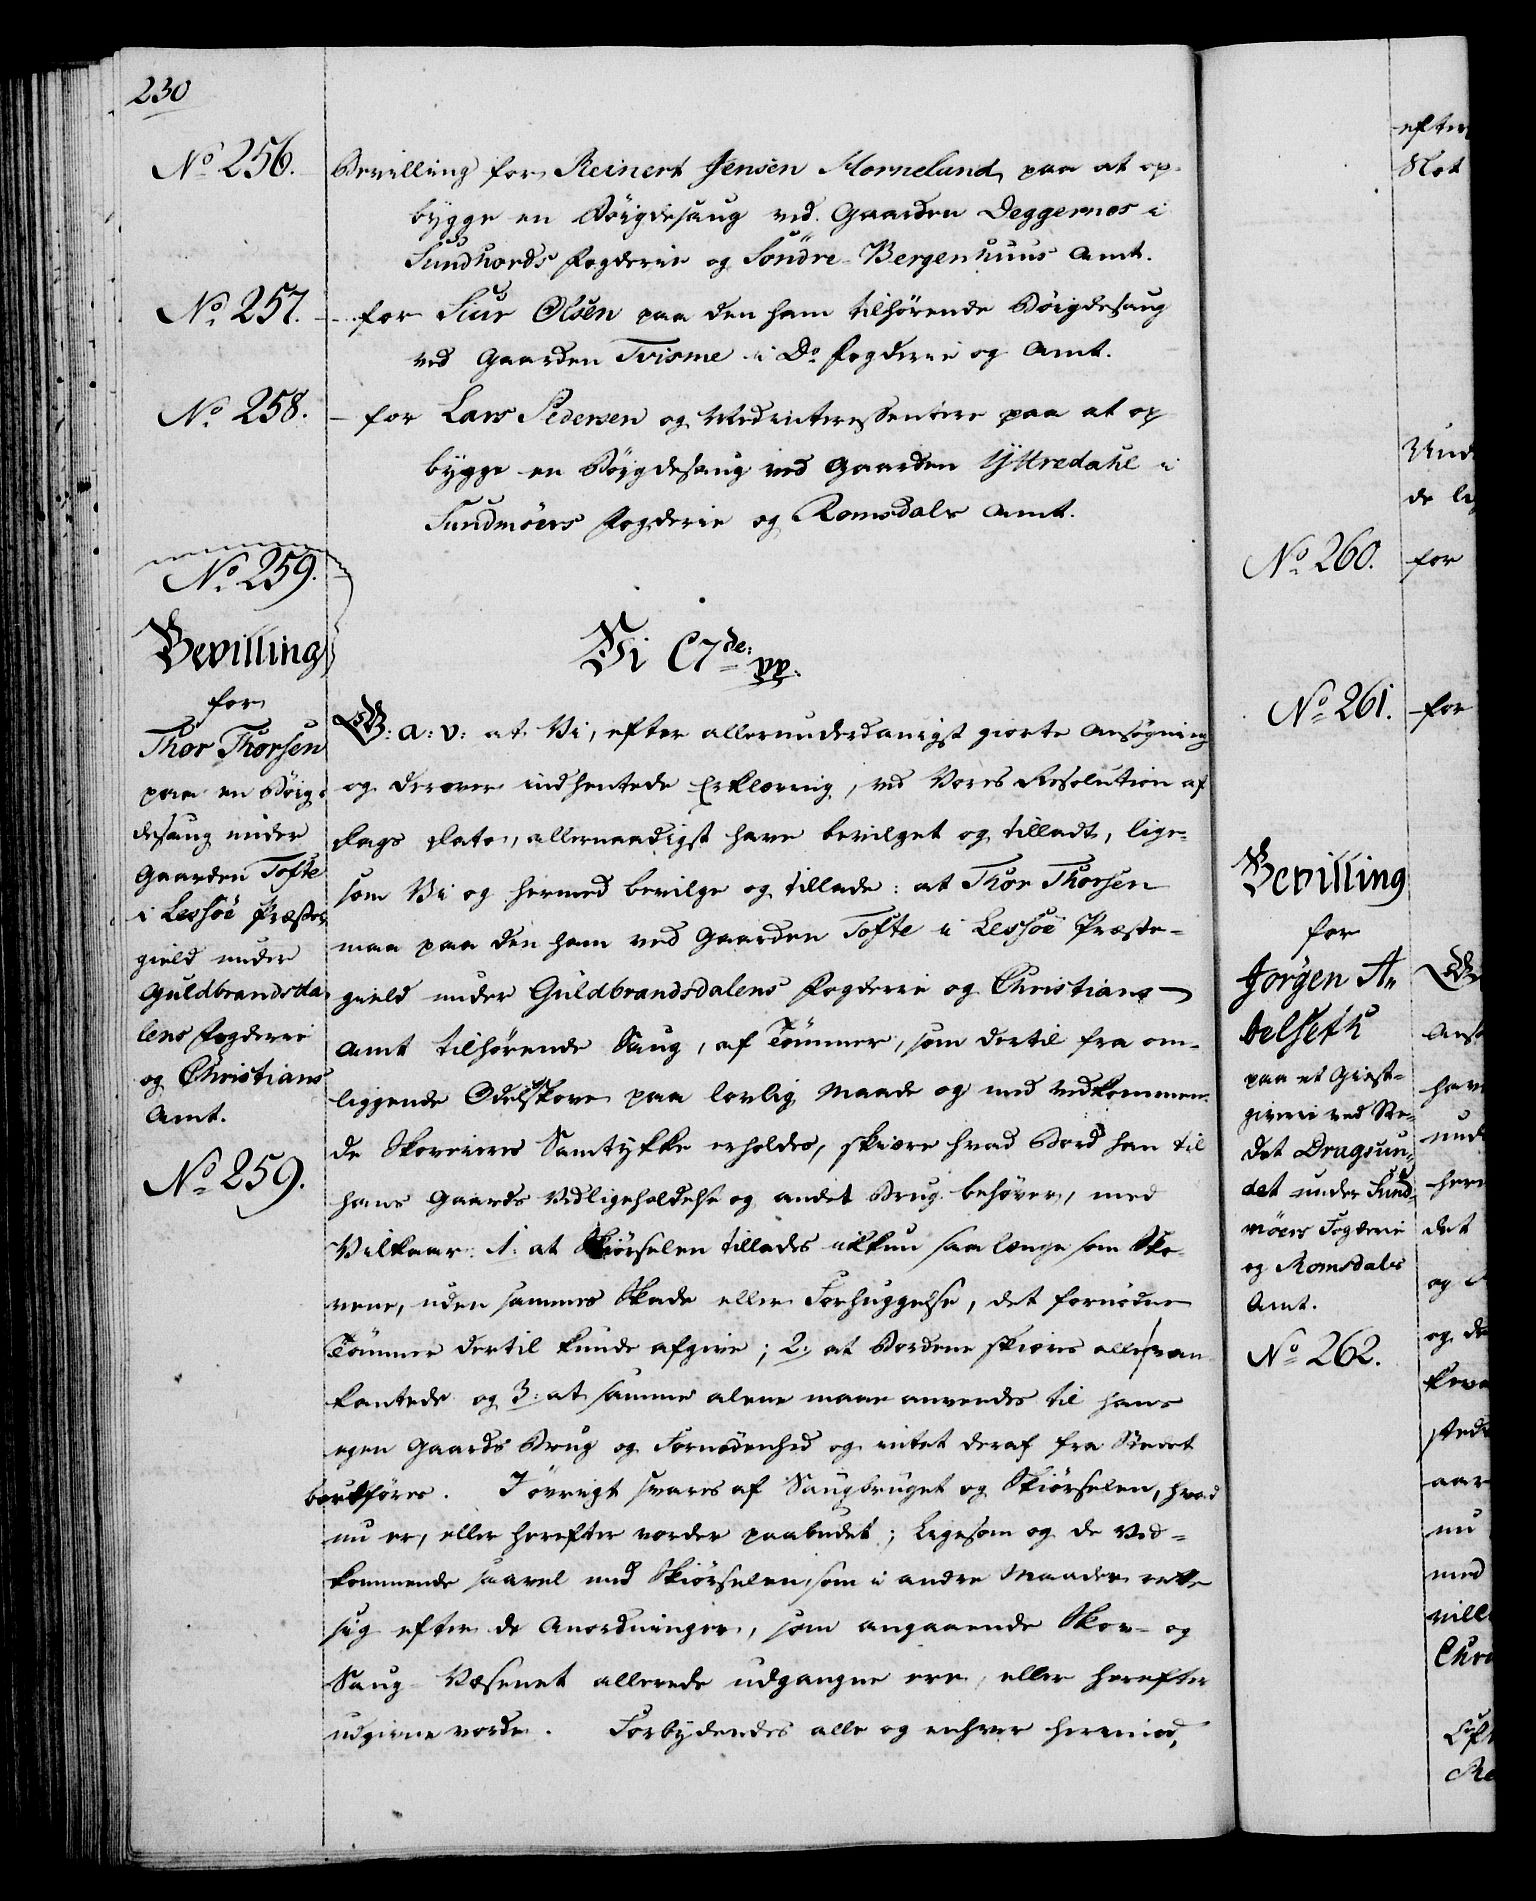 230
No 256.
Bevilling for Reinert Jensen Horneland, paa at op-
bygge en Böigdesaug ved Gaarden Deggernes i
Sundhords Fogderie og Söndre-Bergenhuus Amt.
No 257.
- for Siur Olsen paa den ham tilhørende Böigdesaug
ved Gaarden Tvisme i Do Fogderie og Amt.
No 258.
- for Lars Pedersen og Medinteressentere paa at op
bygge en Böigdesaug ved Gaarden Yttredahl i
Sundmöers Fogderie og Romsdals Amt.
No 259.
Bevilling
for
Thor Thorsen
paa en Böig-
desaug under
Gaarden Tofte
i Lessöe Præste-
gield under
Guldbrandsda-
lens Fogderie
og Christians
Amt.
No 259.
Vi C7de: pp.
G: a: v: at Vi, efter allerunderdanigst giorte Ansøgning
og derover indhentede Erklæring, ved Vores Resolution af
Dags Dato, allernaadigst have bevilget og tilladt, lige-
som Vi og hermed bevilge og tillade: at Thor Thorsen
maa paa den ham ved Gaarden Tofte i Lessöe Præste-
gield under Guldbrandsdalens Fogderie og Christians
Amt tilhørende Saug, af Tømmer, som dertil fra om-
liggende Odelskove paa lovlig Maade og med vedkommen-
de Skoveieres Samtykke erholdes, skiære hvad Bord han til
hans Gaards Vedligeholdelse og andet Brug behøver, med
Vilkaar: 1: at Skiørselen tillades ikkun saalænge som Sko-
vene, uden sammes Skade eller Forhuggelse, det fornødne
Tømmer dertil kunde afgive; 2: at Bordene skiæres alle van
kantede og 3: at samme alene maae anvendes til hans
egen Gaards Brug og Fornødenhed og intet deraf fra Stedet
bortföres. I övrigt svares af Saugbruget og Skiørselen, hvad
nu er, eller herefter vorder paabudet; Ligesom og de Ved-
kommende saavel med Skiørselen, som i andre Maader rette
sig efter de Anordninger, som angaaende Skov- og
Saug-Væsenet allerede udgangne ere, eller herefter
udgivne vorde. Forbydendes alle og enhver herimod,
efter
No 260.
for
No 261.
for
Bevilling
for
Jörgen A-
belseth
paa et Giest-
giverie ved Ste-
det Dragsun-
det under Sund-
möers Fogderie
og Romsdals
Amt.
No 262.
Ansø
have
unde
herm
det
og
og de
stede
aar
nu
med
ville
Chri